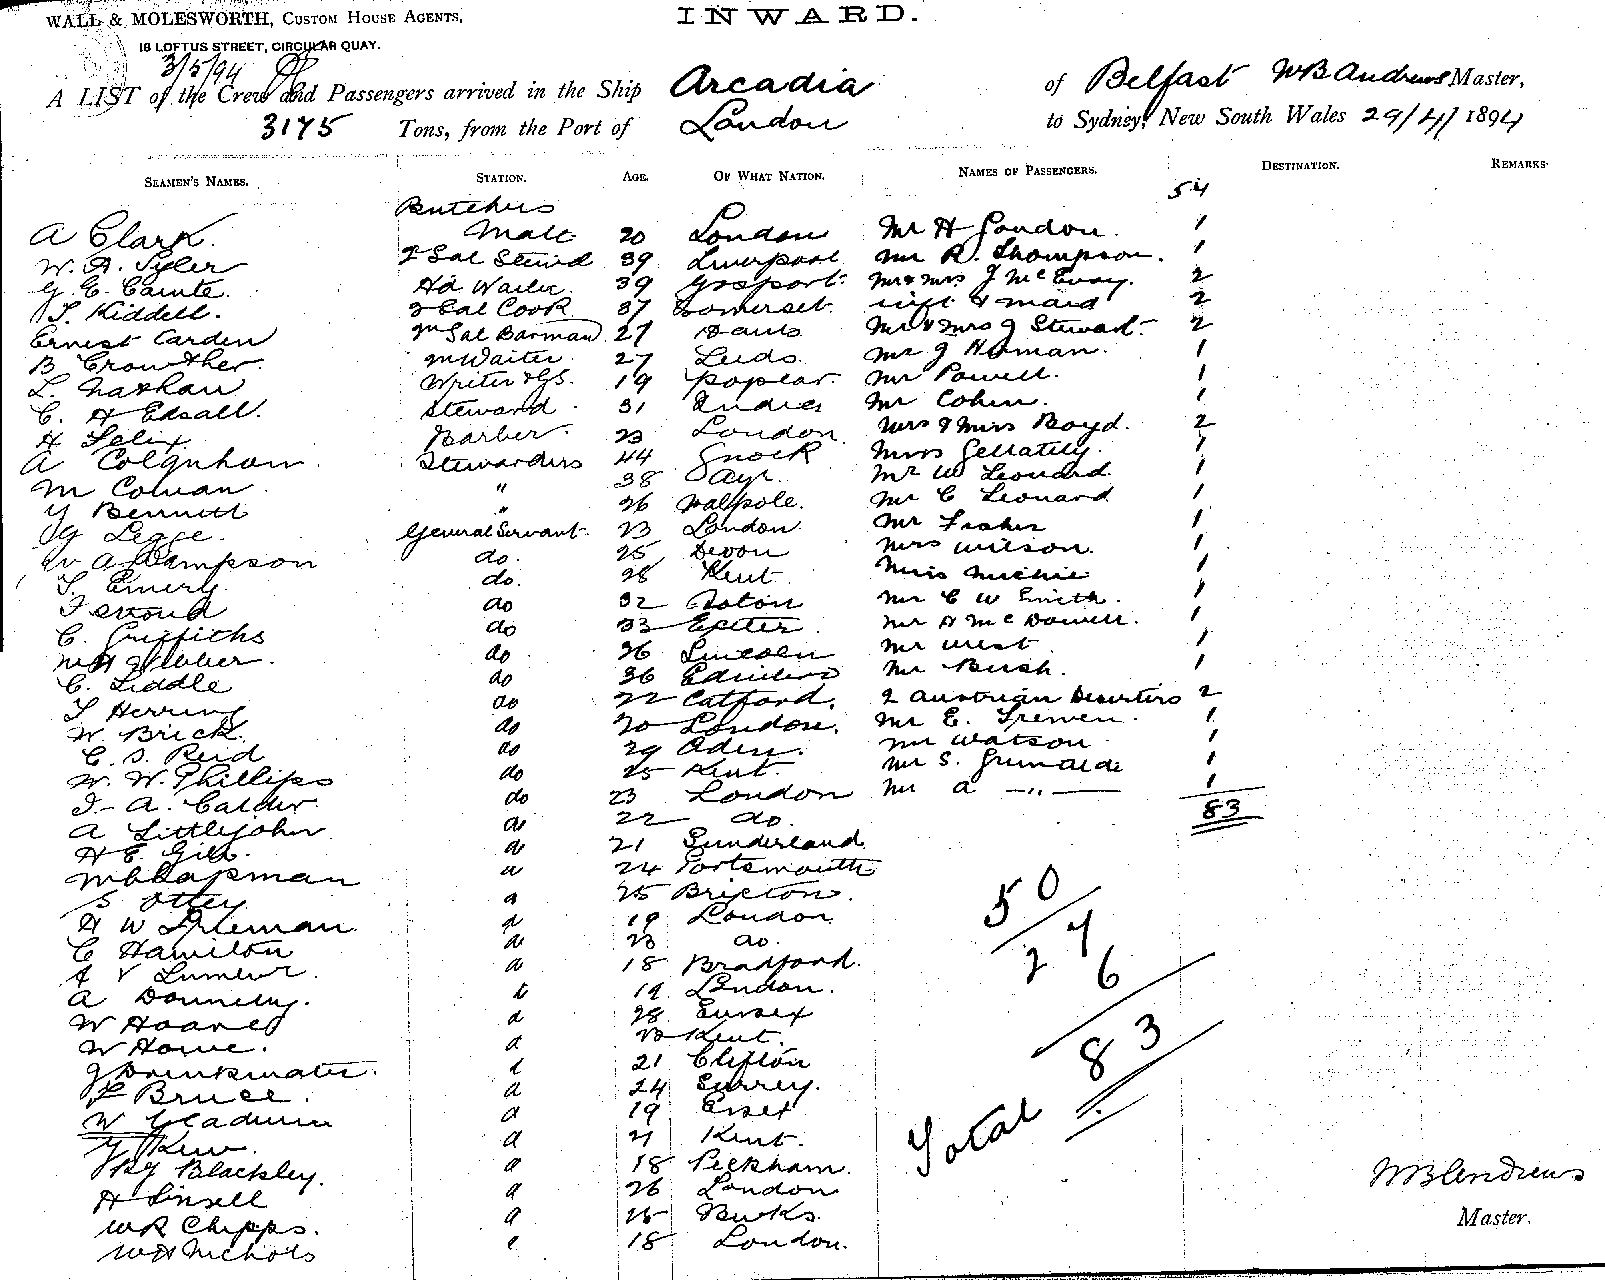 WALL & MOLESWORTH, CUSTOM HOUSE AGENTS,
INWARD.
18 LOFTUS STREET, CIRCULAR QUAY.
3/5/94
A LIST of the Crew and Passengers arrived in the Ship Arcadia of Belfast WB Andrews Master,
3175 Tons, from the Port of London to Sydney, New South Wales 29/4/1894
SEAMEN'S NAMES. STATION. AGE. OF WHAT NATION. NAMES OF PASSENGERS. DESTINATION. REMARKS.
54
Butchers
A Clark. Mate 20 London Mr H 1
W. A. Tyler 2 Sal Stewd 39 Liverpool Mr R. Thompson. 1
Hd Waiter 39 Gosport. Mr & Mrs J McEvoy. 2
T. Kiddell. 2 Sal Cook 37 Somerset inft & maid 2
Ernest Carden Sal Barman 27 Hants Mr & Mrs J Stewart. 2
B Crowther. M Waiter 27 Leeds. Mr J Homan. 1
L. Nathan Writer & GS. 19 Poplar. Mr Powell. 1
C. H Edsall. Steward 31 Indies Mr Cohen. 1
H Felix Barber 23 London & Miss Boyd. 2
A Colquhoun Stewardess 44 Miss Gellately. 1
M Cowan " 38 Ayr. Mr W Leonard 1
Y Bennett " 26 Walpole. Mr C Leonard 1
G Legge. General Servant 23 London Mr Fisher 1
A Sampson do. 25 Devon Mrs Wilson. 1
T. Emery do. 28 Kent Miss Michie 1
F Stroud do 32 Aston Mr C W Smith. 1
C. Griffiths do 33 Exeter Mr A McDowell. 1
do 26 Lincoln Mr West 1
C. Liddle do 36 Mr Bush. 1
T Herring do 22 Catford. 2 Austrian Deserters 2
W. Brick. do 20 London. Mr E. Tremen. 1
C. S. Reid do 29 Aden. Mr Watson 1
W. W. Phillips do 25 Kent. Mr S. Grimalde 1
A. Calder do 23 London Mr A —"— 1
A Littlejohn do 22 do. 83
H E. Gill. do 21 Sunderland
W Chapman do 24 Portsmouth
S Ottey do 25 Brixton.
H W do 19 London
C Hamilton do 23 do.
do 18 Bradford.
A Donnelly. do 19 London.
W Hoare do 28 Sussex
W Howe. do Kent.
J Drinkwater. do 21 Clifton
Bruce. do 24 Surrey.
W Gladwin do 19 Essex
Kew. do 21 Kent.
Blackley. do 18 Peckham.
H Linsell do 26 London
WR Chipps. do 25 Bucks.
WH Nichols 18 London.
50
27
6
Total 83
WB Andrews
Master.